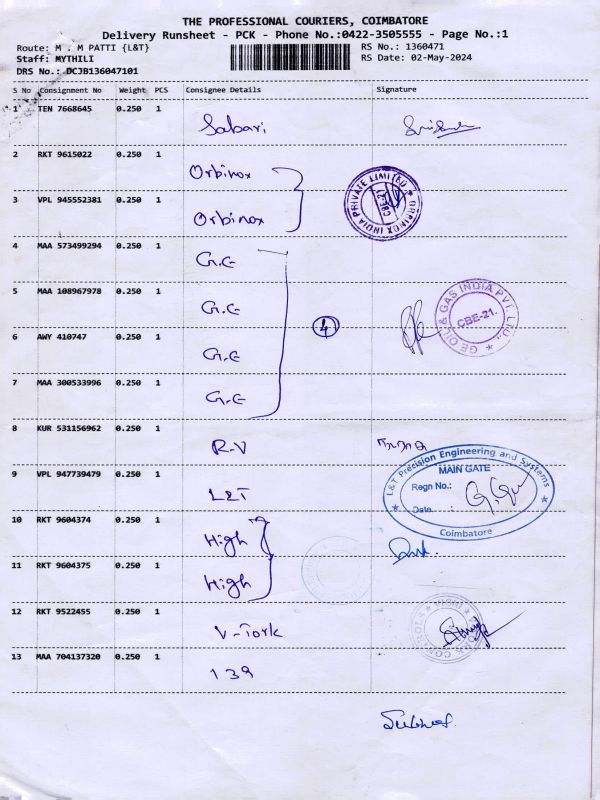 THE PROFESSIONAL COURIERS, COIMBATORE
Delivery Runsheet - PCK - Phone No.:0422-3505555 - Page No.:1
Route: M . M PATTI {L&T} RS No.: 1360471
Staff: MYTHILI RS Date: 02-May-2024
DRS No.: DCJB136047101
S No Consignment No Weight PCS Consignee Details Signature
1 TEN 7668645 0.250 1 Sabari
2 RKT 9615022 0.250 1 Orbinox
3 VPL 945552381 0.250 1 Orbinox
ORBINOX INDIA PRIVATE LIMITED
CBE-21
4 MAA 573499294 0.250 1 G.E
5 MAA 108967978 0.250 1 G.E
4
GE OIL & GAS INDIA PVT. LTD.,
CBE-21.
6 AWY 410747 0.250 1 G.E
7 MAA 300533996 0.250 1 G.E
8 KUR 531156962 0.250 1 R.V
9 VPL 947739479 0.250 1 L&T
L&T Precision Engineering and Systems
MAIN GATE
Regn No.:
Date :
Coimbatore
10 RKT 9604374 0.250 1 High
11 RKT 9604375 0.250 1 High
12 RKT 9522455 0.250 1 V-Tork
13 MAA 704137320 0.250 1 139